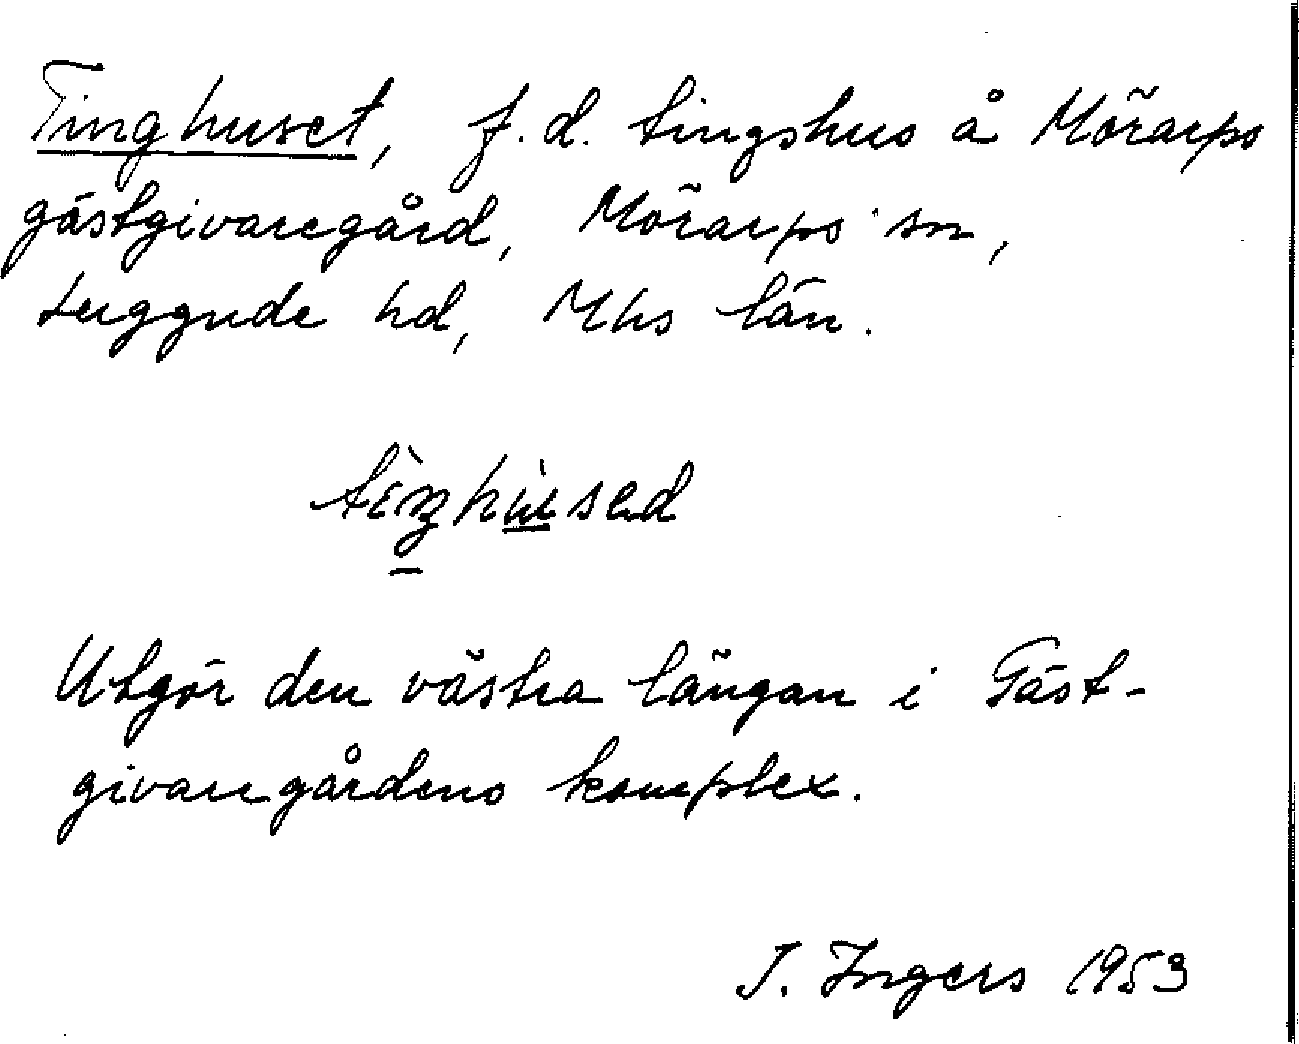 Tinghuset, f.d. tingshus å Mörarps
gästgivaregård, Mörarps sn,
Luggude hd, Mhs län.
Utgör den västra längan i Gäst-
givaregårdens komplex.
I. Ingers 1953